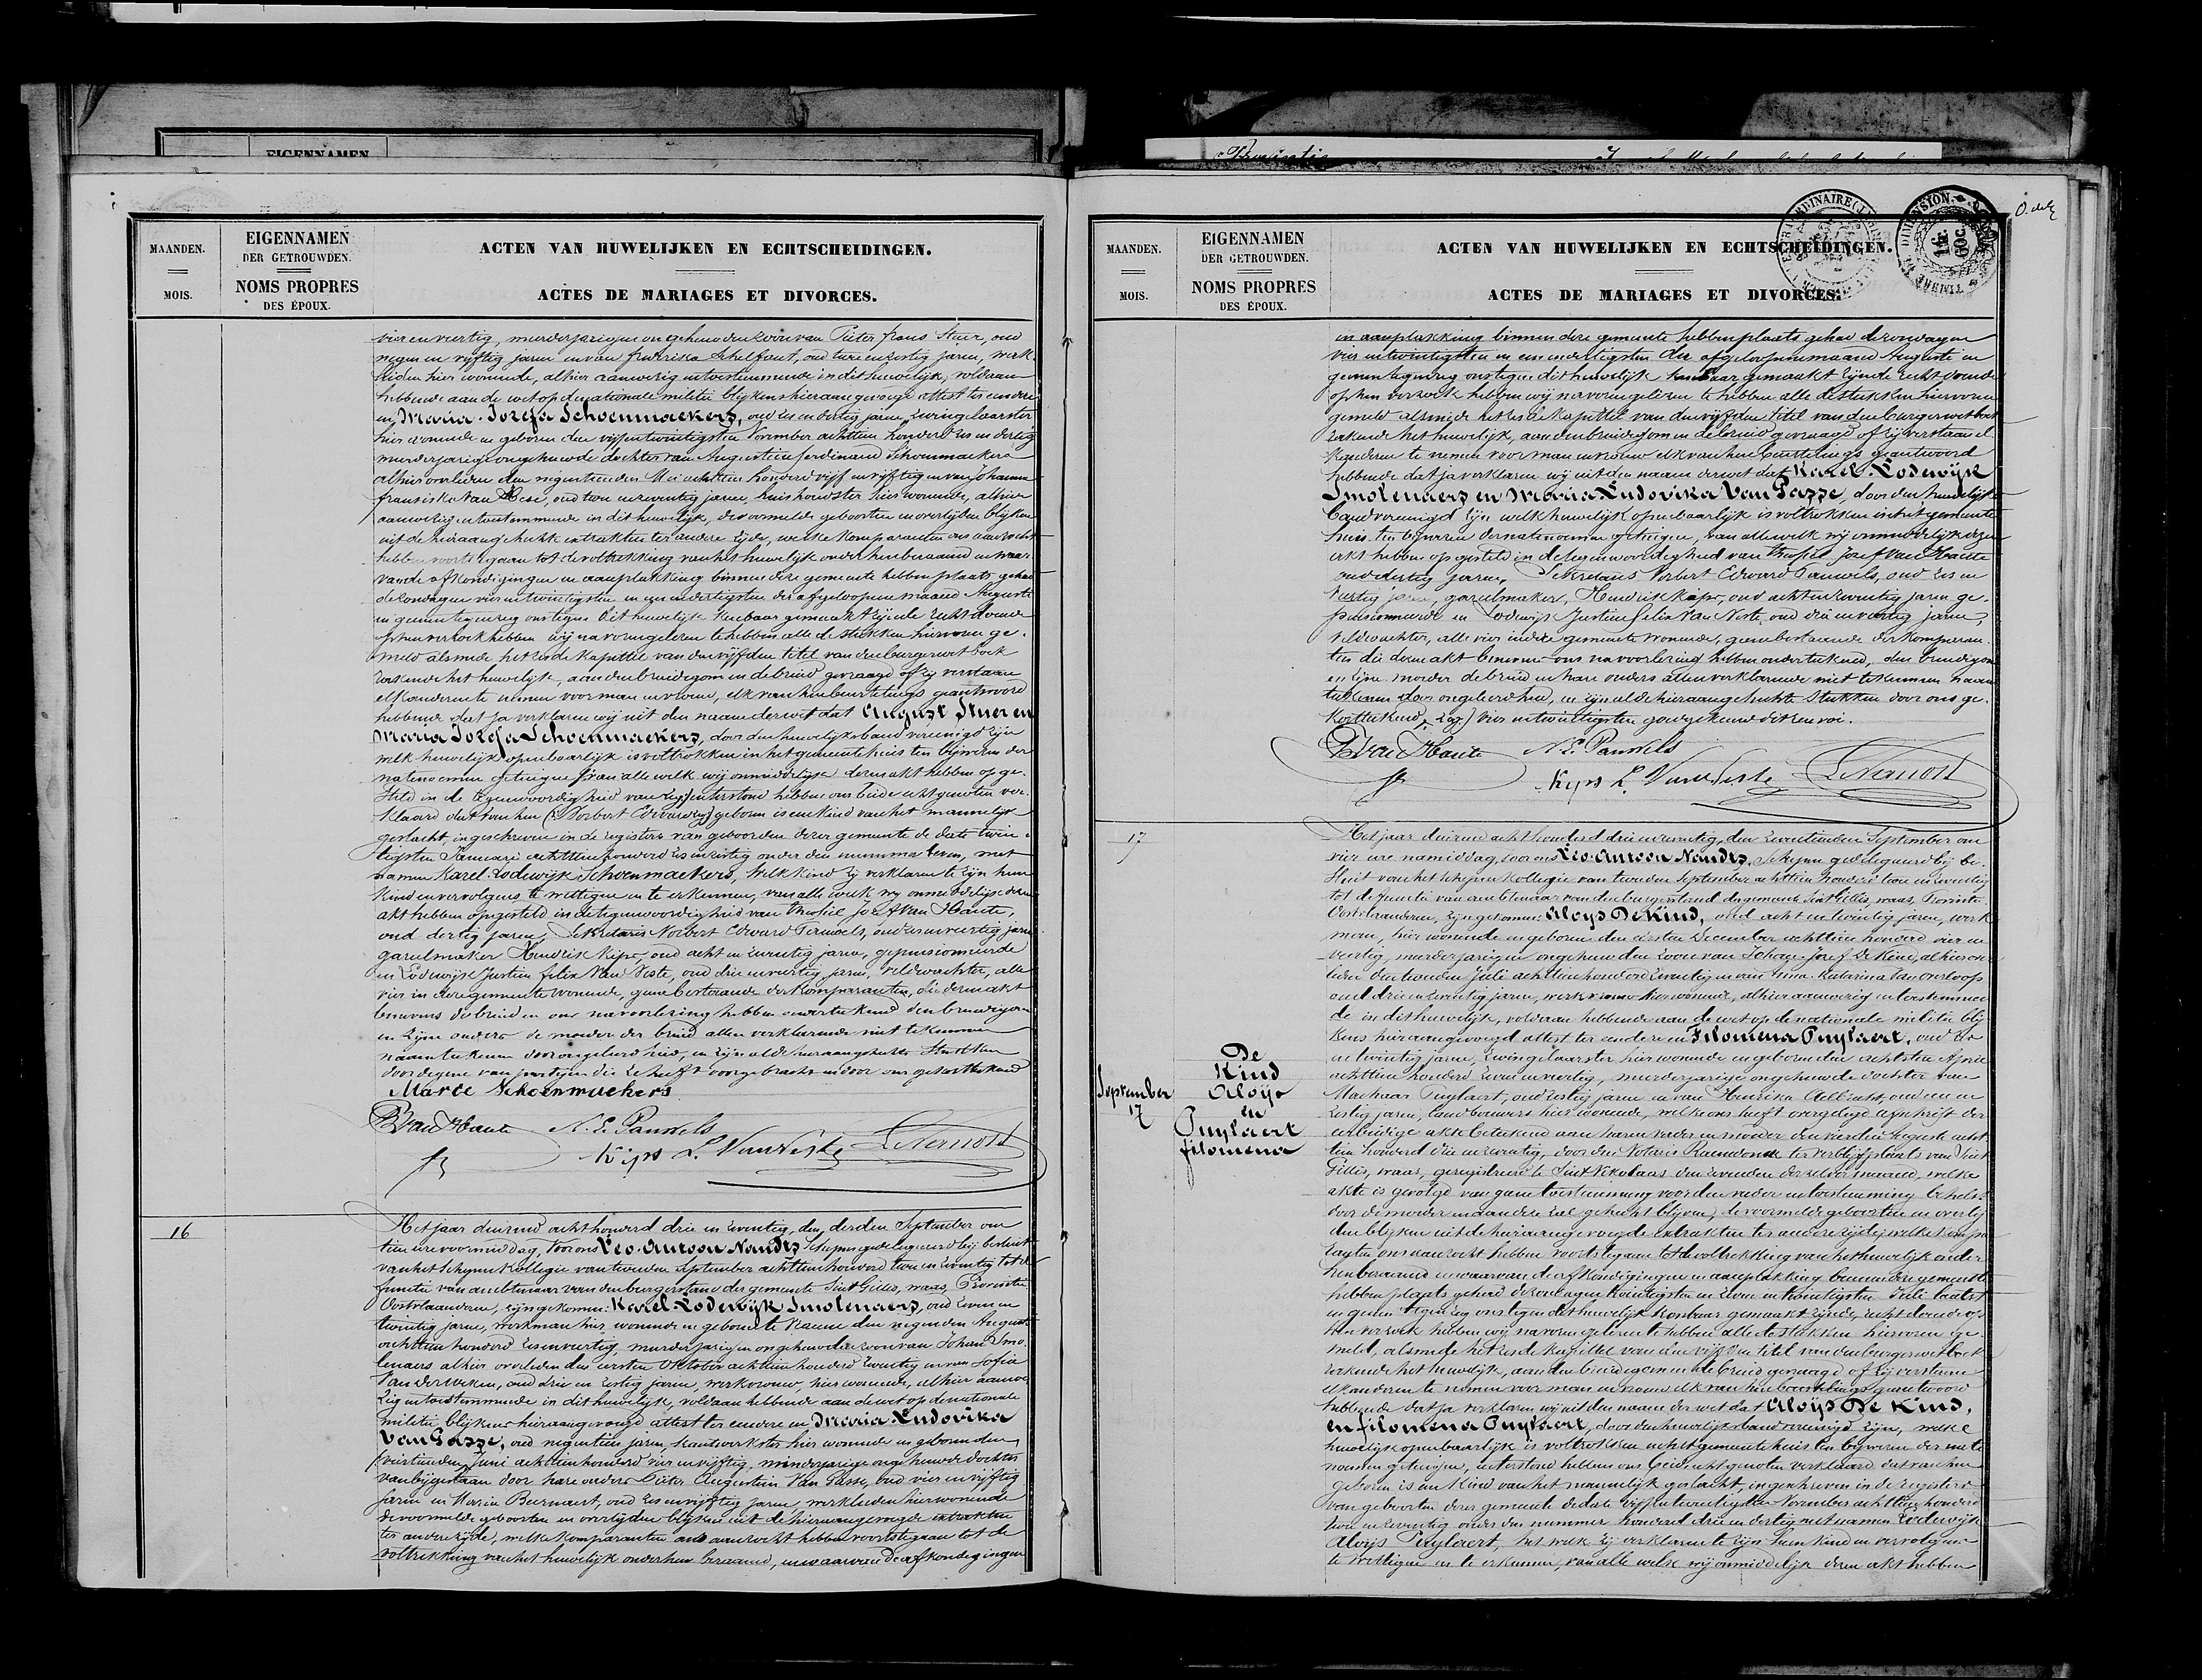 EIGENNAMEN
MAANDEN.
MOIS.
EIGENNAMEN
DER GETROUWDEN.
NOMS PROPRES
DES ÉPOUX.
ACTEN VAN HUWELIJKEN EN ECHTSCHEIDINGEN.
ACTES DE MARIAGES ET DIVORCES.
vier en veertig, meerderjarigen ongehuwden zoon van Pieter Frans Stuer, oud
negen en vijftig jaren en van Fransiska Schelfout, oud twee en zestig jaren, werk-
lieden hier wonende, alhier aanwezig en toestemmende in dit huwelijk, voldaan
hebbende aan de wet op de nationale militie blijkens hieraangevoegd attest ter eendere
en Maria-Jozefa Schoenmaekers, oud zes en dertig jaren, zwingelaarster
hier wonende en geboren den vijf en twintigsten November achttien honderd zes en dertig
meerderjarige ongehuwde dochter van Augustien Ferdinand Schoenmaekers
alhier overleden den negentienden Mei achttien honderd vijf en vijftig en van Johanna
Fransiska Van Hese, oud twee en zeventig jaren, huishoudster hier wonende, alhier
aanwezig en toestemmende in dit huwelijk, de voormelde geboorten en overlijden blijken
uit de hieraangehechte extrakten ter andere zijde, welke komparanten ons aanzocht
hebben voorts te gaan tot de voltrekking van het huwelijk onder hen beraamd en waar-
van de afkondigingen en aanplakking binnen deze gemeente hebben plaats gehad
de zondagen vier en twintigsten en een en dertigsten der afgeloopene maand Augusti
en geenen tegenzeg ons tegen dit huwelijk kenbaar gemaakt zijnde recht doende
op hun verzoek hebben wij na voorengelezen te hebben alle de stukken hiervoren ge-
meld alsmede het zesde kapittel van den vijfden titel van den burgerwetboek
rakende het huwelijk, aan den bruidegom en de bruid gevraagd of zij verstaan
elkanderen te nemen voor man en vrouw, elk van hen beurtelings geantwoord
hebbende dat ja verklaren wij uit den naam der wet dat August Stuer en
Maria Jozefa Schoenmaekers, door den huwelijksband vereenigd zijn
welk huwelijk openbaarlijk is voltrokken in het gemeentehuis ten bijwezen der
natenoemen getuigen
klaard dat van hen (Norbert Edward) geboren is een kind van het mannelijk
geslacht, ingeschreven in de registers van geboorten dezer gemeente de dato twin-
tigsten Januari achttien honderd zes en zestig onder den nummer zeven, met
namen Karel-Lodewijk Schoenmaekers, welk kind zij verklaren te zijn hun
kind en vervolgens te wettigen en te erkennen, van alle welk wij onmiddelijk dezen
akt hebben opgesteld in de tegenwoordigheid van Theofiel Jozef Van Haute,
oud dertig jaren, Sekretaris Norbert Edward Pauwels, oud zes en veertig jaren
gareelmaker Hendrik Kips, oud acht en zeventig jaren, gepensioneerde
en Lodewijk Justien Felix Van Neste, oud drie en veertig jaren, veldwachter, alle
vier in deze gemeente wonende, geene bestaande der komparanten, die dezen akt
benevens de bruid en ons na voorlezing hebben onderteekend den bruidegom
en zijne ouders de moeder der bruid allen verklarende niet te kunnen
naamteekenen door ongeleerdheid, en zijn alle de hieraangehechte stukken
door degene van partijen die ze heeft voorgebracht en door ons gekortteekend
Marie Schoenmackers
Van Haute N. E. Pauwels
Kips L. Van Neste L. Nandts
16
Het jaar duizend acht honderd drie en zeventig, den derden September om
tien ure voormiddag, voor ons Leo-Antoon Nandts Schepen gedelegueerd bij besluit
van het Schepen Kollegie van tweeden September achttien honderd twee en zeventig tot de
functie van ambtenaar van den burgerstand der gemeente Sint Gillis, waas, Provintie
Oostvlaanderen, zijn gekomen: Karel Lodewijk Smolenaers, oud zeven en
twintig jaren, werkman hier wonende en geboren te Vracene den negenden Augusti
achttien honderd zes en veertig, meerderjarigen ongehuwden zoon van Johan Smo-
lenaers alhier overleden den eersten Oktober achttien honderd zeventig en van Sofia
Van der weken, oud drie en zestig jaren, werkvrouw, hier wonende, alhier aanwe-
zig en toestemmende in dit huwelijk, voldaan hebbende aan de wet op de nationale
militie blijkens hieraangevoegd attest ter eendere en Maria-Ludovika
Van Gasse, oud negentien jaren, kantwerkster hier wonende en geboren den
veertienden Juni achttien honderd vier en vijftig, minderjarige ongehuwde dochter
van bijgestaan door hare ouders Pieter Augustien Van Gasse, oud vier en vijftig
jaren en Maria Beernaert, oud zes en vijftig jaren, werklieden hier wonende
de voormelde geboorten en overlijden blijken uit de hieraangevoegde extrakten
ter andere zijde, welke komparanten ons aanzocht hebben voorts te gaan tot de
voltrekking van het huwelijk onder hen beraamd, en waarvan de afkondigingen
MAANDEN.
MOIS.
EIGENNAMEN
DER GETROUWDEN.
NOMS PROPRES
DES ÉPOUX.
ACTEN VAN HUWELIJKEN EN ECHTSCHEIDINGEN.
ACTES DE MARIAGES ET DIVORCES.
1 fr.
60 c.
en aanplakking binnen deze gemeente hebben plaats gehad de zondagen
vier en twintigsten en een en dertigsten der afgeloopene maand Augusti en
geenen tegenzeg ons tegen dit huwelijk kenbaar gemaakt zijnde recht doende
op hun verzoek hebben wij na vorengelezen te hebben alle de stukken hiervoren
gemeld alsmede het zesde kapittel van den vijfden titel van den burgerwetboek
rakende het huwelijk, aan den bruidegom en de bruid gevraagd of zij verstaan el-
kanderen te nemen voor man en vrouw elk van hen beurtelings geantwoord
hebbende dat ja verklaren wij uit den naam der wet dat Karel-Lodewijk
Smolenaers en Maria-Ludovika Van Gasse, door den huwelijks-
band vereenigd zijn welk huwelijk openbaarlijk is voltrokken in het gemeente-
huis ten bijwezen der natenoemen getuigen, van alle welk wij onmiddelijk dezen
akt hebben opgesteld in de tegenwoordigheid van Theofiel Jozef Van Haute
oud dertig jaren, Sekretaris Norbert Edward Pauwels, oud zes en
veertig jaren, gareelmaker, Hendrik Kips, oud acht en zeventig jaren ge-
pensioneerde en Lodewijk Justien Felix Van Neste, oud drie en veertig jaren,
veldwachter, alle vier in deze gemeente wonende, geene bestaande der komparan-
ten die dezen akt benevens ons na voorlezing hebben onderteekend, den bruidegom
en zijne moeder de bruid en hare ouders allen verklarende niet te kunnen naam-
teekenen door ongeleerdheid, en zijn alle de hieraangehechte stukken door ons ge-
kortteekend, vier en twintigsten goedgekeurd dit renvoi.
Van Haute N. E. Pauwels
Kips L. Van Neste L. Nandts
17
September
17
De
Kind
Aloijs
en
Puylaert
Filomena
Het jaar duizend acht honderd drie en zeventig, den zeventienden September om
vier ure namiddag, voor ons Leo-Antoon Nandts, Schepen gedelegueerd bij be-
sluit van het Schepen Kollegie van tweeden September achttien honderd twee en zeventig
tot de functie van ambtenaar van den burgerstand der gemeente Sint Gillis, waas, Provintie
Oostvlaanderen, zijn gekomen: Aloys De Kind, oud acht en twintig jaren, werk-
man, hier wonende en geboren den eersten December achttien honderd vier en
veertig, meerderjarigen ongehuwden zoon van Johan-Jozef De Kind, alhier over-
leden den tweeden Juli achttien honderd zeventig en van Anna-Katarina Van overloop
oud drie en zeventig jaren, werkvrouw hier wonende, alhier aanwezig en toestemmen-
de in dit huwelijk, voldaan hebbende aan de wet op de nationale militie blij-
kens hieraangevoegd attest ter eendere en Filomena Puylaert, oud zes
en twintig jaren, zwingelaarster hier wonende en geboren den achtsten April
achttien honderd zeven en veertig, meerderjarige ongehuwde dochter van
Machaar Puylaert, oud zestig jaren en van Henrika Aelbrecht, oud een en
zestig jaren, landbouwers hier wonende, welke ons heeft overgelegd afschrift der
eerbiedige akte beteekend aan haren vader en moeder den vierden Augusti acht-
tien honderd drie en zeventig, door den Notaris Raemdonck ter verblijfplaats van Sint
Gillis, waas, geregistreerd te Sint Nikolaas den zevenden derzelver maand, welke
akte is gevolgd van geene toestemming voor den vader en toestemming behels-
door de moeder en aan deze zal gehecht blijven, de voormelde geboorten en overlij-
den blijken uit de hieraangevoegde extrakten ter andere zijde, welke kompa-
ranten ons aanzocht hebben voorts te gaan tot de voltrekking van het huwelijk onder
hen beraamd en waarvan de afkondigingen en aanplakking binnen deze gemeente
hebben plaats gehad de zondagen twintigsten en zeven en twintigsten Juli laatst
en geenen tegenzeg ons tegen dit huwelijk kenbaar gemaakt zijnde, recht doende op
hun verzoek hebben wij na voren gelezen te hebben alle de stukken hiervoren ge-
meld, alsmede het zesde kapittel van den vijfden titel van den burgerwetboek
rakende het huwelijk, aan den bruidegom en de bruid gevraagd of zij verstaan
elkanderen te nemen voor man en vrouw elk van hen beurtelings geantwoord
hebbende dat ja verklaren wij uit den naam der wet dat Aloijs De Kind,
en Filomena Puylaert, door den huwelijksband vereenigd zijn, welk
huwelijk openbaarlijk is voltrokken in het gemeentehuis ten bijwezen der nate-
noemen getuigen, interstond hebben ons beide echtgenoten verklaard dat van hen
geboren is een kind van het mannelijk geslacht, ingeschreven in de registers
van geboorten dezer gemeente de dato vijf en twintigsten November achttien honderd
twee en zeventig onder den nummer honderd drie en dertig met namen Lodewijk
Aloijs Puylaert, het welk zij verklaren te zijn hun kind en vervolgens
te wettigen en te erkennen, van alle welk wij onmiddelijk dezen akt hebben